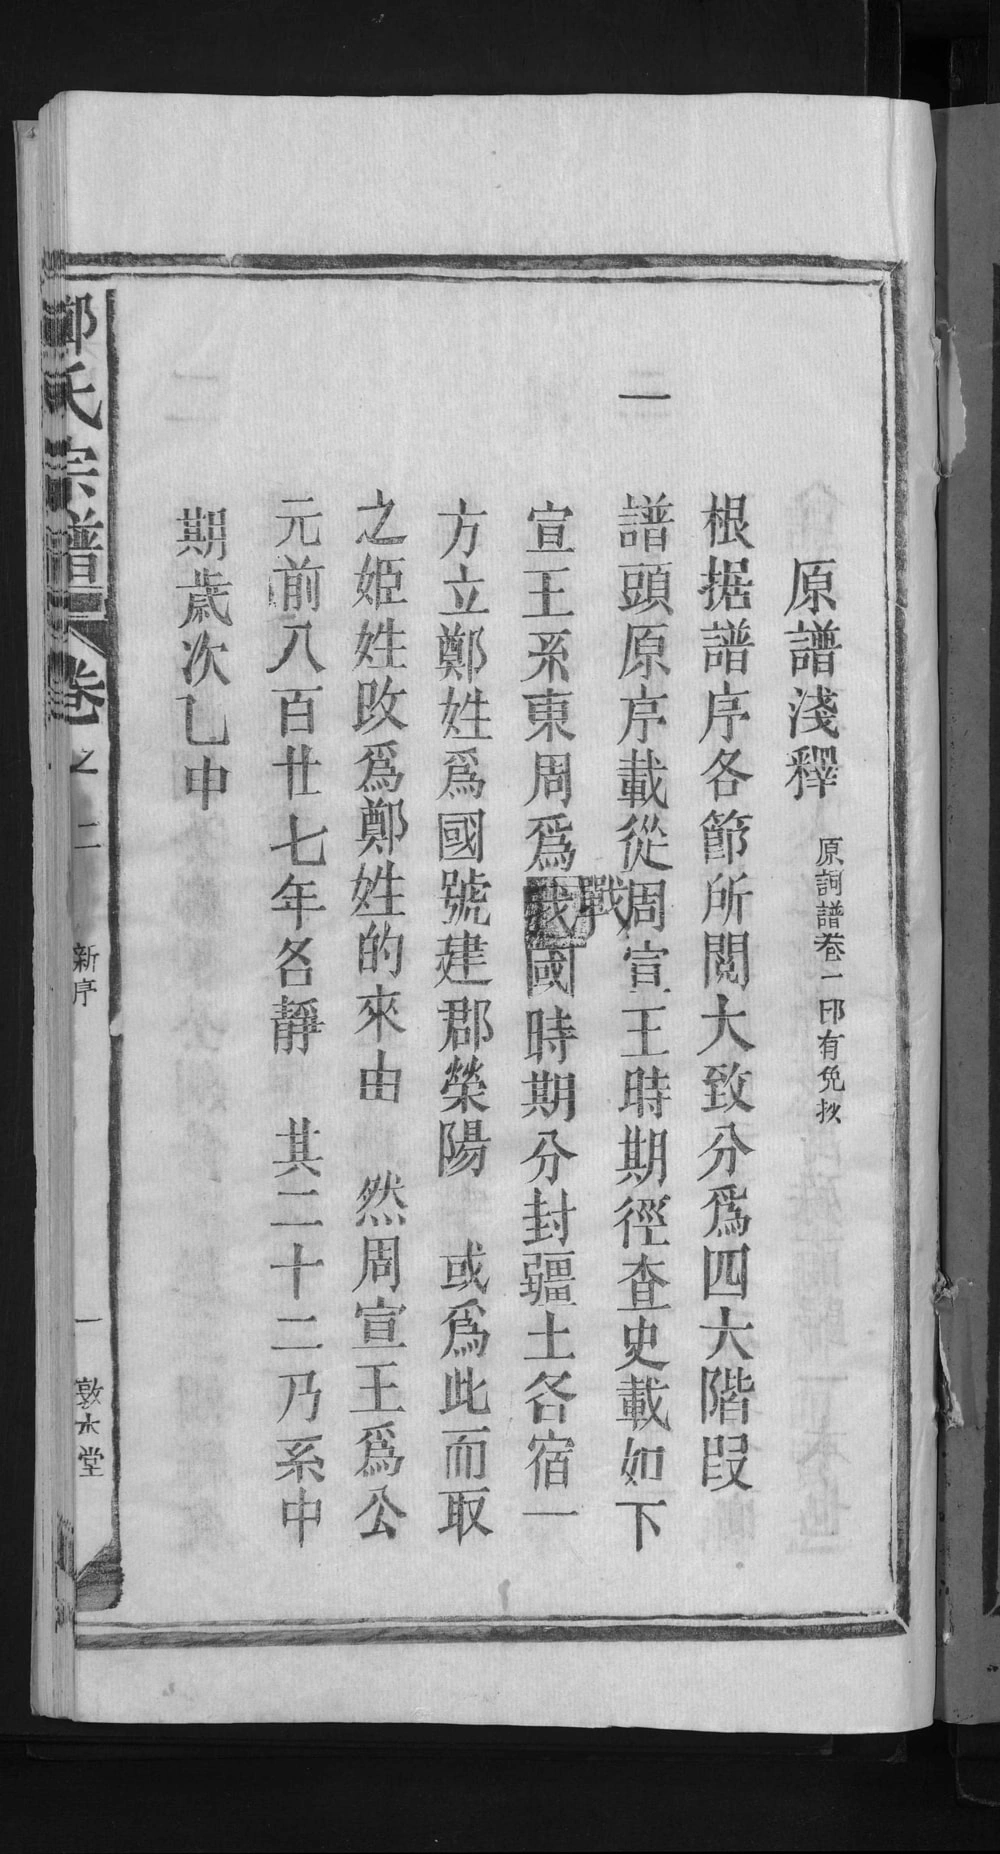 原譜淺釋 原詞譜卷一印有免抄
根据譜序各節所閲大致分爲四大階段
一 譜頭原序載從周宣王時期徑查史載如下
宣王系東周爲戰國時期分封疆土各宿一
方立鄭姓爲國號建郡榮陽 或爲此而取
之姬姓改爲鄭姓的來由 然周宣王爲公
元前八百廿七年各靜 其二十二乃系中
期歲次乙申
鄭氏宗譜 卷之二 新序 一 敦木堂